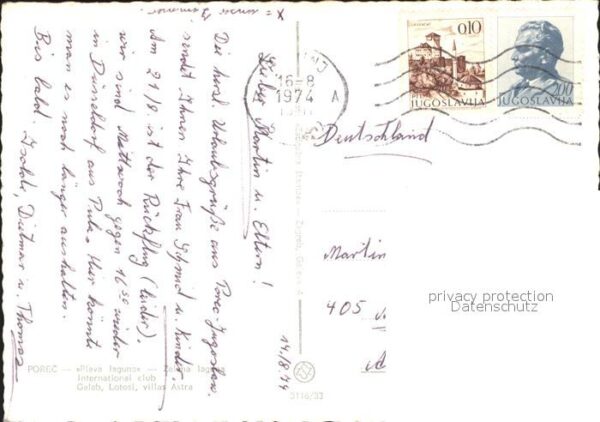 x = unser Zimmer
14/8.74
Lieber Martin u. Eltern!
Die herzl. Urlaubsgrüße aus Porec-Jugoslav.
sendet Ihnen Ihre Frau Schmid u. Kinder.
Am 21/8. ist der Rückflug (leider).
wir sind Mittwoch gegen 16 50 wieder
in Düsseldorf aus Pula. Hier könnte
man es noch länger aushalten.
Bis bald. Isolde, Dietmar u. Thomas
16-8
1974 A
0,10
JUGOSLAVIJA
2,00
JUGOSLAVIJA
Deutschland
Martin
405
privacy protection
Datenschutz
POREČ — »Plava laguna« — Zelena laguna
International club
Galeb, Lotosi, villas Astra
3116/33